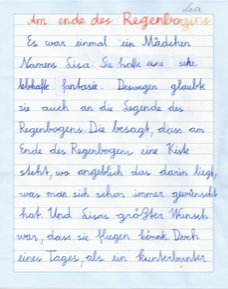 Lisa
Am ende des Regenbogens
Es war einmal ein Mädchen
Namens Lisa. Sie hatte eine sehr
lebhafte fantasie. Deswegen glaubt
sie auch an die Legende des
Regenbogens. Die besagt, dass am
Ende des Regenbogens eine Kiste
steht, wo angeblich das darin liegt,
was man sich schon immer gewünscht
hat. Und Lisas größter Wunsch
war, dass sie fliegen könnte. Doch
eines Tages, als ein kunterbunter